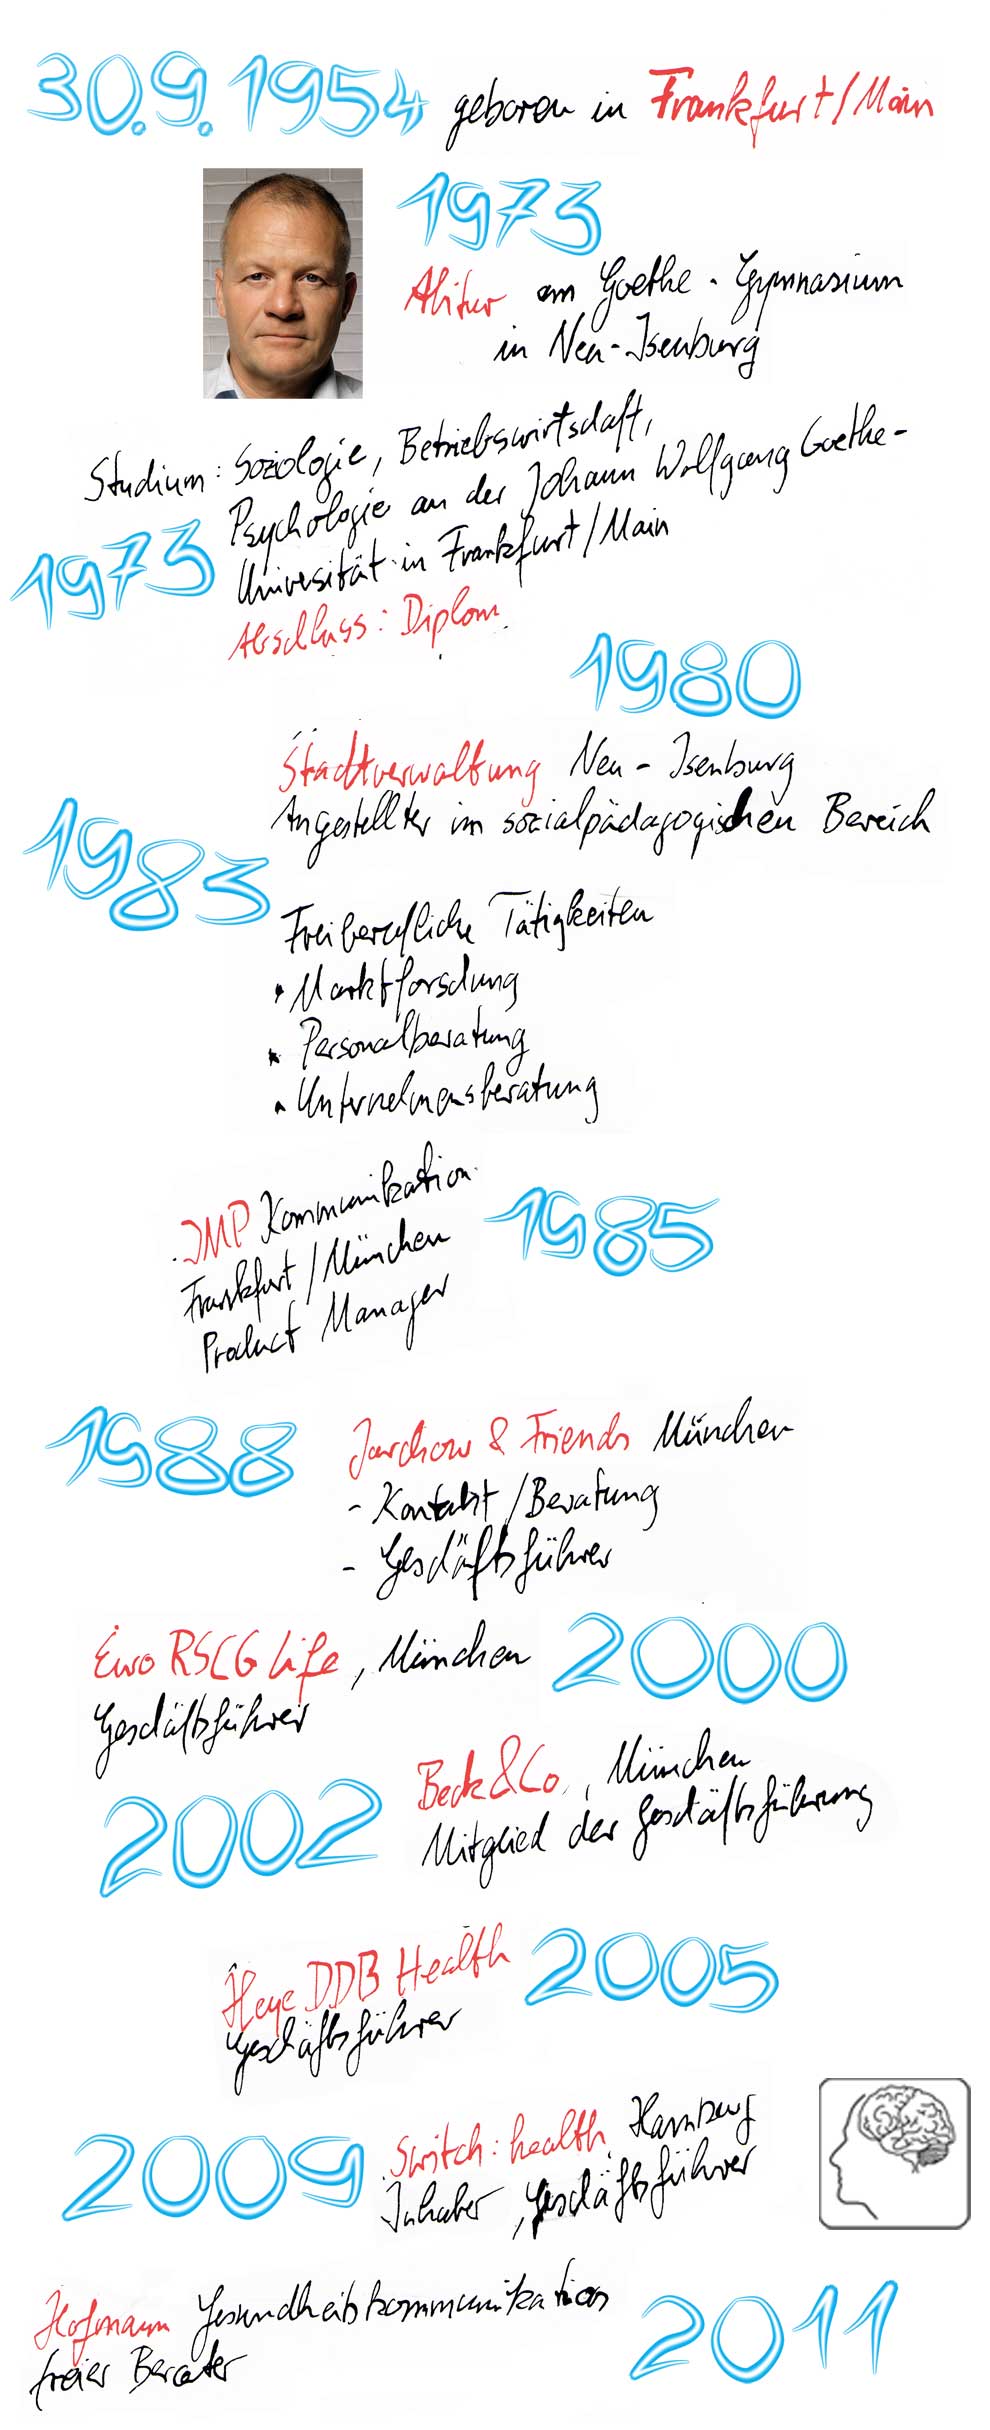 30.9.1954 geboren in Frankfurt/Main
1973
Abitur am Goethe-Gymnasium
in Neu-Isenburg
1973
Studium: Soziologie, Betriebswirtschaft,
Psychologie an der Johann Wolfgang Goethe-
Universität in Frankfurt/Main
Abschluss: Diplom
1980
Stadtverwaltung Neu-Isenburg
Angestellter im sozialpädagogischen Bereich
1983
Freiberufliche Tätigkeiten
• Marktforschung
• Personalberatung
• Unternehmensberatung
1985
IMP Kommunikation
Frankfurt/München
Product Manager
1988
Jarchow & Friends München
- Kontakt/Beratung
- Geschäftsführer
2000
Euro RSCG Life, München
Geschäftsführer
2002
Beck & Co., München
Mitglied der Geschäftsführung
2005
Heye DDB Health
Geschäftsführer
2009
Switch: health, Hamburg
Inhaber, Geschäftsführer
2011
Hofmann Gesundheitskommunikation
freier Berater